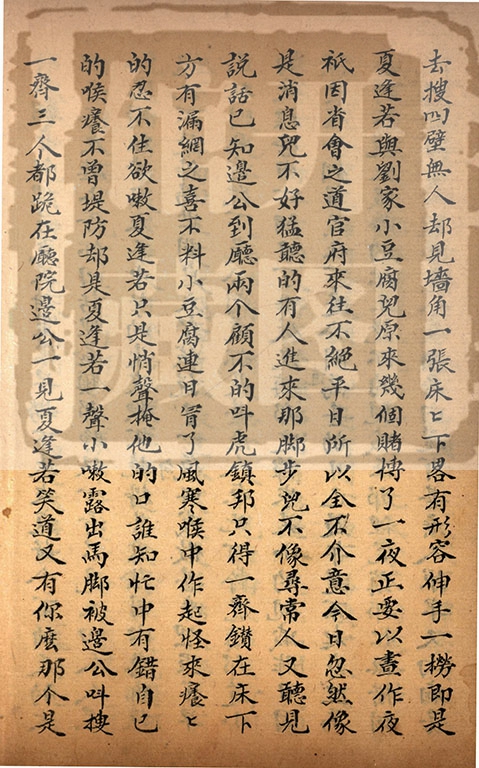 去搜四壁無人却見墻角一張床〻下畧有形容伸手一撈即是
夏逢若與劉家小豆腐兒原來幾個賭博了一夜正要以晝作夜
祇因省會之道官府來往不絕平日所以全不介意今日忽然像
是消息兒不好猛聽的有人進來那脚步兒不像尋常人又聽見
說話已知邊公到廳兩个顧不的呌虎鎮邦只得一齊鑽在床下
方有漏網之喜不料小豆腐連日冒了風寒喉中作起怪來癢〻
的忍不住欲嗽夏逢若只是悄聲掩他的口誰知忙中有錯自己
的喉癢不曾堤防却是夏逢若一聲小嗽露出馬脚被邊公呌搜
一齊三个都跪在廳院邊公一見夏逢若笑道又有你麽那个是